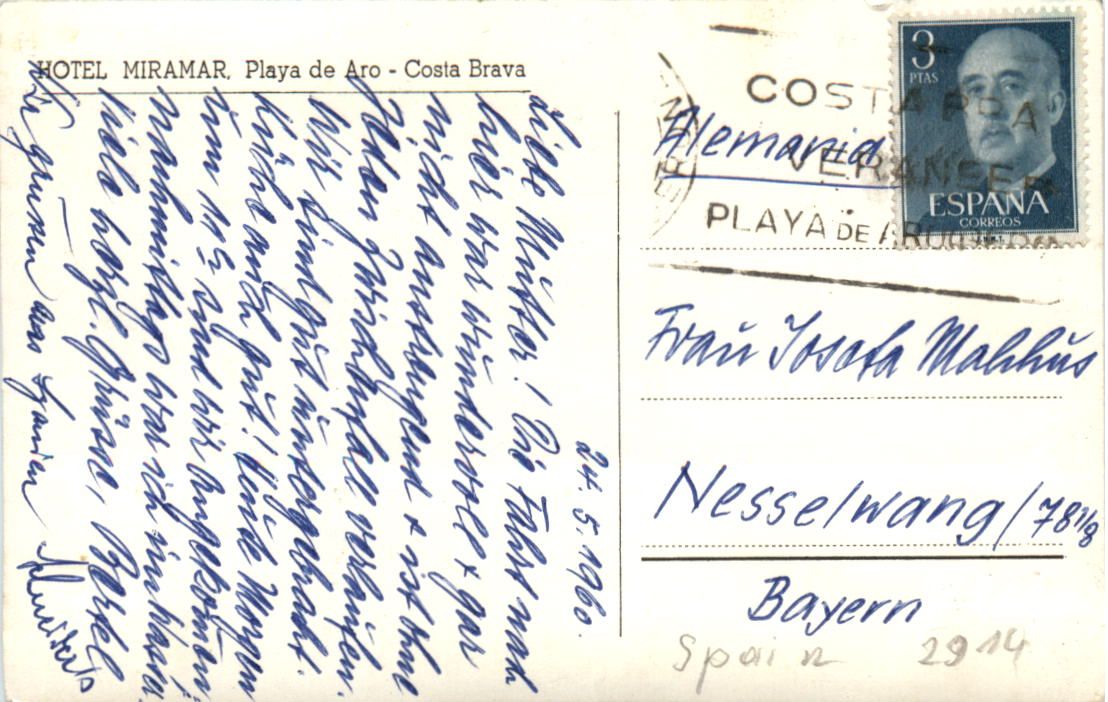 HOTEL MIRAMAR, Playa de Aro - Costa Brava
24. 5. 1960.
Liebe Mutter! Die Fahrt nach
hier war wundervoll + gar
nicht anstrengend + ist ohne
jeden Zwischenfall verlaufen.
Wir sind gut untergebracht.
Küche auch gut! Heute Morgen
um 11 sind wir angekommen
nachmittags war ich im Wasser
Viele herzl. Grüsse,
Wir grüssen aus Spanien
Alemania
COSTA BRAVA
VERANEE
PLAYA DE ARO
3
PTAS
ESPAÑA
CORREOS
Frau Josefa Malhus
Nesselwang/
Bayern
Spain 2914